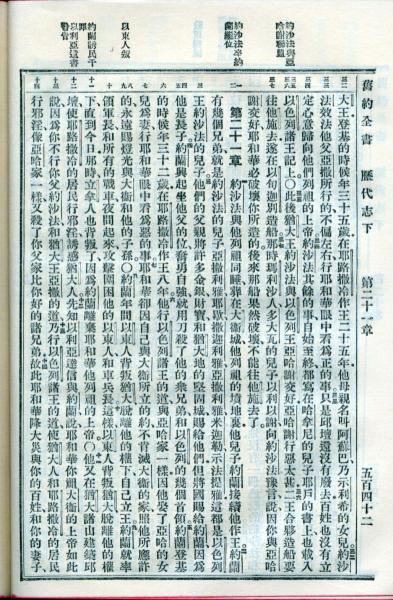 舊約全書 歷代志下 第二十一章 五百四十二
約沙法與亞哈謝聯盟
約沙法卒約蘭繼位
以東人叛
約蘭誘民干罪
以利亞遺書警告
大王登基的時候年三十五歲在耶路撒冷作王二十五年他母親名叫阿蘇巴乃示利希的女兒約沙
法效法他父亞撒所行的不偏左右行耶和華眼中看為正的事只是邱壇還沒有廢去百姓也沒有立
定心意歸向他們列祖的上帝約沙法其餘的事自始至終都寫在哈拿尼的兒子耶戶的書上也載入
以色列諸王記上〇此後猶大王約沙法與以色列王亞哈謝交好亞哈謝行惡太甚二王合夥造船要
往他施去遂在以旬迦別造船那時瑪利沙人多大瓦的兒子以利以謝向約沙法豫言說因你與亞哈
謝交好耶和華必破壞你所造的後來那船果然破壞不能往他施去了
第二十一章 約沙法與他列祖同睡葬在大衛城他列祖的墳地裏他兒子約蘭接續他作王約蘭
有幾個兄弟就是約沙法的兒子亞撒利雅耶歇撒迦利雅亞撒利雅米迦勒示法提雅這都是以色列
王約沙法的兒子他們的父親將許多金銀財寶和猶大地的堅固城賜給他們但將國賜給約蘭因為
他是長子約蘭興起坐他父的位奮勇自強就用刀殺了他的衆兄弟和以色列的幾個首領約蘭登基
的時候年三十二歲在耶路撒冷作王八年他行以色列諸王的道與亞哈家一樣因他娶了亞哈的女
兒為妻行耶和華眼中看為惡的事耶和華卻因自己與大衛所立的約不肯滅大衛的家照他所應許
的永遠賜燈光與大衛和他的子孫〇約蘭年間以東人背叛猶大脫離他的權下自己立王約蘭就率
領軍長和所有的戰車夜間起來攻擊圍困他的以東人和車兵長這樣以東人背叛猶大脫離他的權
下直到今日那時立拿人也背叛了因為約蘭離棄耶和華他列祖的上帝〇他又在猶大諸山建築邱
壇使耶路撒冷的居民行邪淫誘惑猶大人先知以利亞達信與約蘭說耶和華你祖大衛的上帝如此
說因為你不行你父約沙法和猶大王亞撒的道乃行以色列諸王的道使猶大人和耶路撒冷的居民
行邪淫像亞哈家一樣又殺了你父家比你好的諸兄弟故此耶和華降大災與你的百姓和你的妻子